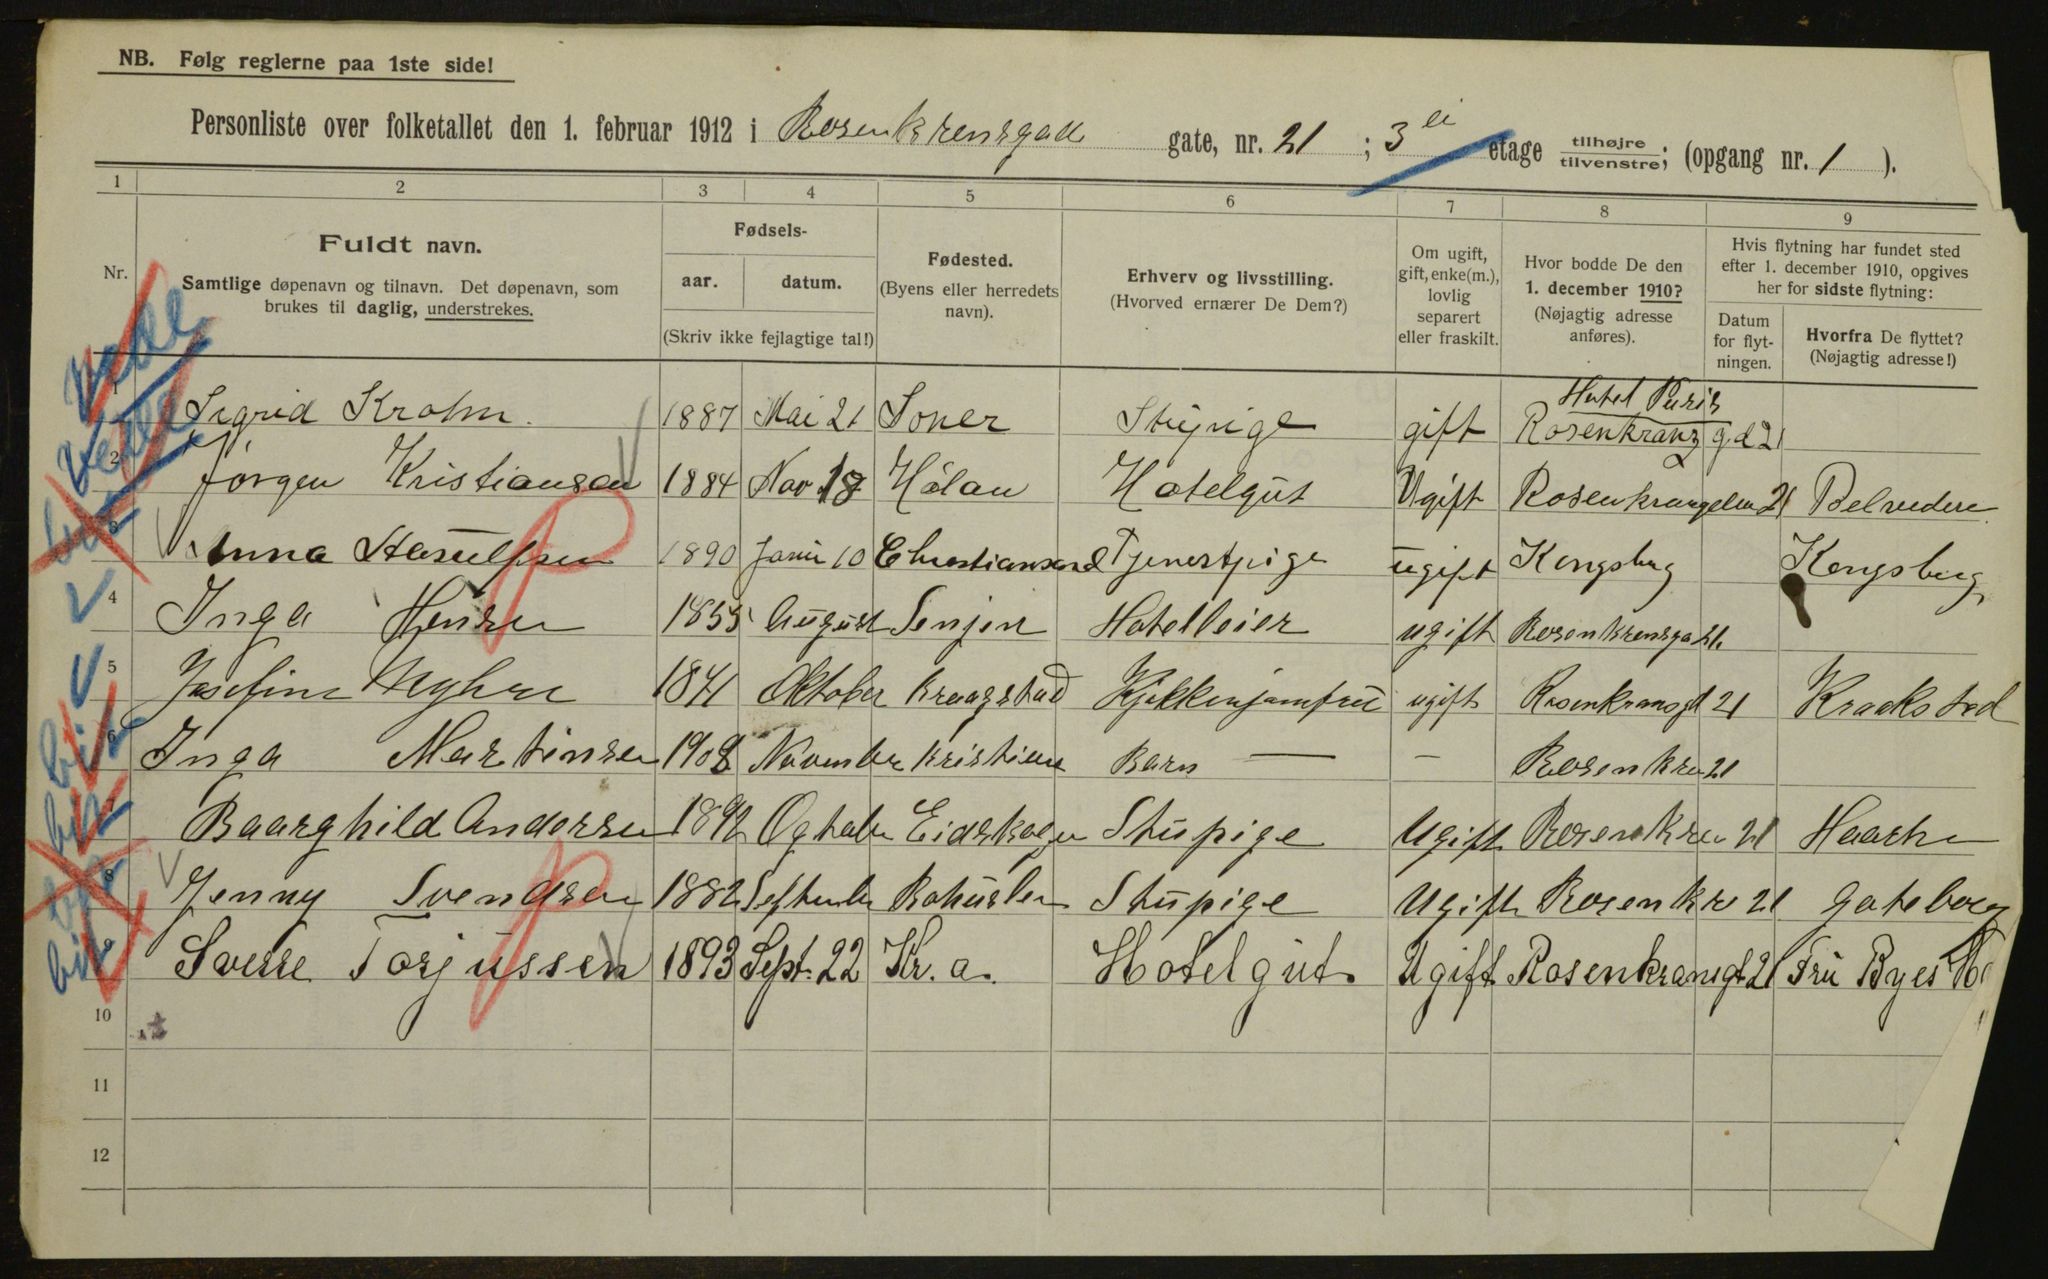 NB. Følg reglerne paa 1ste side!
Personliste over folketallet den 1. februar 1912 i Rosenkrensgade gate, nr. 21 ; 3 etage tilhøjre tilvenstre; (opgang nr. 1 ).
1 2 3 4 5 6 7 8 9
Nr.
Fuldt navn.
Samtlige døpenavn og tilnavn. Det døpenavn, som
brukes til daglig, understrekes.
Fødsels-
aar. datum.
(Skriv ikke fejlagtige tal!)
Fødested.
(Byens eller herredets
navn).
Erhverv og livsstilling.
(Hvorved ernærer De Dem?)
Om ugift,
gift, enke(m.),
lovlig
separert
eller fraskilt.
Hvor bodde De den
1. december 1910?
(Nøjagtig adresse
anføres).
Hvis flytning har fundet sted
efter 1. december 1910, opgives
her for sidste flytning:
Datum
for flyt-
ningen.
Hvorfra De flyttet?
(Nøjagtig adresse!)
Hotel Paris
1 Sigrid Krohn 1887 Mai 21 Soner gift Rosenkranz gd 21
2 Jørgen Kristiansen 1884 Nov 18 Hólan Hotelgut Ugift 21 Belvedere
3 Anna 1890 10 Christiansand Tjenestpige ugift Kongsberg Kongsberg
4 Inga 1855 August Senjen Hotelleier ugift Rosenkrensga 21.
5 Josefine Myhre 1841 Oktober Kraagstad Kjøkkenjomfru ugift Rosenkransgt 21 Kraakstad
6 Inga Martinsen 1908 November Kristiania Barn — - Rosenkre 21
7 Baarghild Andersen 1892 Ogtober Eidskogen Stupige Ugift Rosenkre 21
8 Jenny Svendsen 1882 September Bohuslen Stupige Ugift Rosenkre 21 Gøteborg
9 Sverre Torjussen 1893 Sept. 22 Kr. a. Hotelgut. Ugift Rosenkransgt 21 Fru Byes
10
11
12